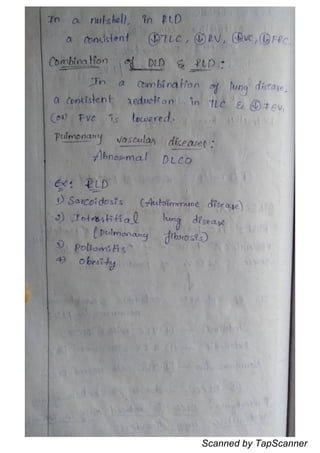 In a nutshell, in RLD
a consistent ↓TLC, ↓RV, ↓VC, ↓FRC.
Combination of DLD & RLD:
In a combination of lung disease,
a consistent reduction in TLC & ↓FEV,
(or) FVC is lowered.
Pulmonary vascular diseases:
Abnormal DLCO
Ex: RLD
1) Sarcoidosis (Autoimmune disease)
2) Interstitial lung disease
(pulmonary fibrosis)
3)
4) Obesity
Scanned by TapScanner